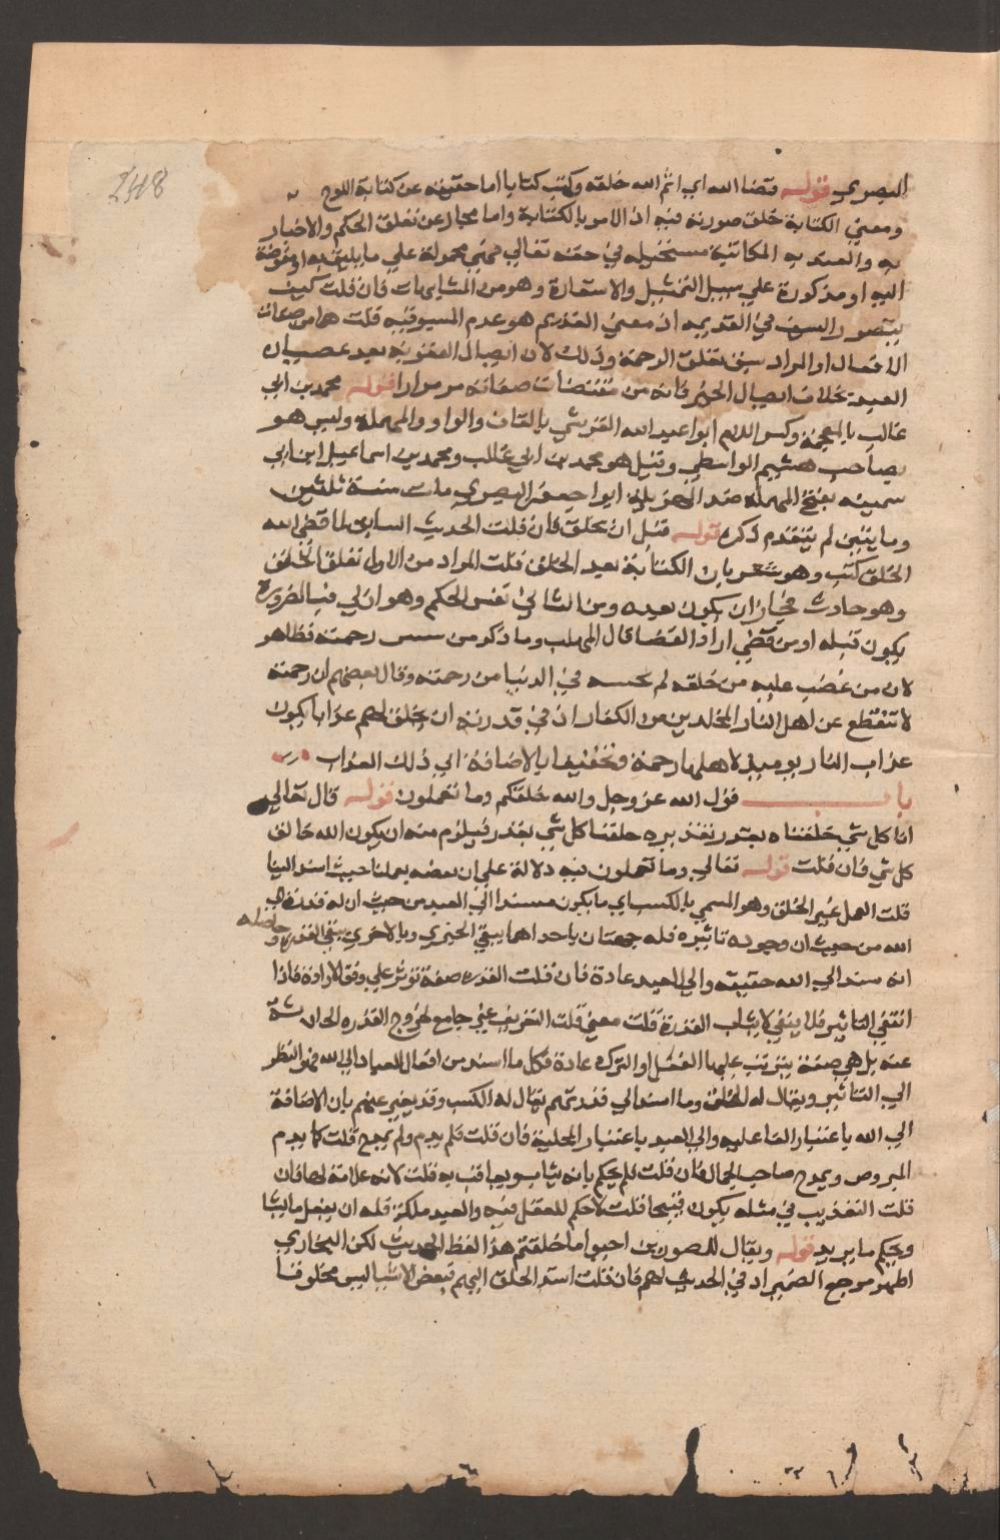 البصري قوله قضا الله اي اتم الله خلقه وكتب كتابا اما حقيقه عن كتابة اللوح
ومعني الكتابة خلق صورته فيه اذ الامر بالكتابة واما مجاز عن تعلق الحكم والاخبار
به والعنديه المكانية مستحيله في حقه تعالي فهي محمولة علي ما يليق به او مفوضة
اليه او مذكورة علي سبيل التمثيل والاستعارة وهو من المتشابهات فان قلت كيف
يتصور السبق في القديم اذ معني القديم هو عدم المسبوقيه قلت هما من صفات
الافعال او المراد سبق تعلق الرحمة وذلك لان ايصال العقوبة بعد عصيان
العبد بخلاف ايصال الخير فانه من مقتضات صفاته مر مرارا قوله محمد بن ابي
غالب بالمعجمة وكسر اللام ابوا عبد الله القرشي بالقاف والواو والمهملة وليس هو
بصاحب هشيم الواسطي وقيل هو محمد بن ابي غالب ومحمد بن اسماعيل ابن ابي
سمينه بفتح المهملة ضد الهزيلة ابوا جعفر البصري مات سنة ثلثين
وما يتين لم يتقدم ذكره قوله قبل ان يخلق فان قلت الحديث السابق لما قضي الله
الخلق كتب وهو شعر بان الكتابة بعد الخلق قلت المراد من الاول تعلق الخلق
وهو حادث فجاز ان يكون بعده ومن الثاني نفس الحكم وهو ازلي فبالضرورة
يكون قبله او من قضي اراد القضا قال المهلب وما ذكر من سبق رحمته فظاهر
لان من غضب عليه من خلقه لم يخيبه في الدنيا من رحمته وقال بعضهم ان رحمته
لا تنقطع عن اهل النار المخلدين من الكفار اذ في قدرته ان يخلق لهم عذابا يكون
عذاب النار يوميذ لاهلها رحمة وتخفيفا بالاضافة الي ذلك العذاب
باب قول الله عز وجل والله خلقكم وما تعملون قوله قال تعالي
انا كل شي خلقناه بقدر تقديره خلقنا كل شي بقدر فيلزم منه ان يكون الله خالق
كل شي فان قلت قوله تعالي وما تعملون فيه دلالة علي ان بعضه بعملنا حيث اسند الينا
قلت العمل غير الخلق وهو المسمي بالكسب اي ما يكون مسندا الي العبد من حيث ان له قدرة الي
الله من حيث ان وجوده تاثيره فله جهتان باحداهما ينفي الجبري وبالاخري ينفي القدر وحاصله
انه مسند الي الله حقيقه والي العبد عادة فان قلت القدره صفة توثر علي وفق الارادة فاذا
انتفي التاثير فلا ينفي لايثاب القدرة قلت معني قلت التعريف غير جامع لخروج القدره الحادثة
عنه بل هي صفة يترتب عليها الفعل او الترك عادة فكل ما اسند من افعال العباد الي الله فهو النظر
الي التاثير ويقال له الخلق وما اسند الي قدرتهم يقال له الكسب وقد يخبر عنهم بان الاضافة
الي الله باعتبار الفاعليه والي العبد باعتبار المحلية فان قلت فلم يذم ولم يمدح قلت كما يذم
المبروص ويمدح صاحب الجمال فان قلت فلم يحكم بانه يثاب ويعاقب به قلت لانه علامة لهما فان
قلت التعذيب في مثله يكون قبيحا قلت لا حكم للعقل فيه والعبد ملكه فله ان يفعل ما يشا
ويحكم ما يريد قوله ويقال للمصورين احيوا ما خلقتم هذا لفظ الحديث لكن البخاري
اظهر مرجع الضمير اذ في الحديث لهم فان قلت اسند الخلق اليهم فبعض الاشيا ليس مخلوقا